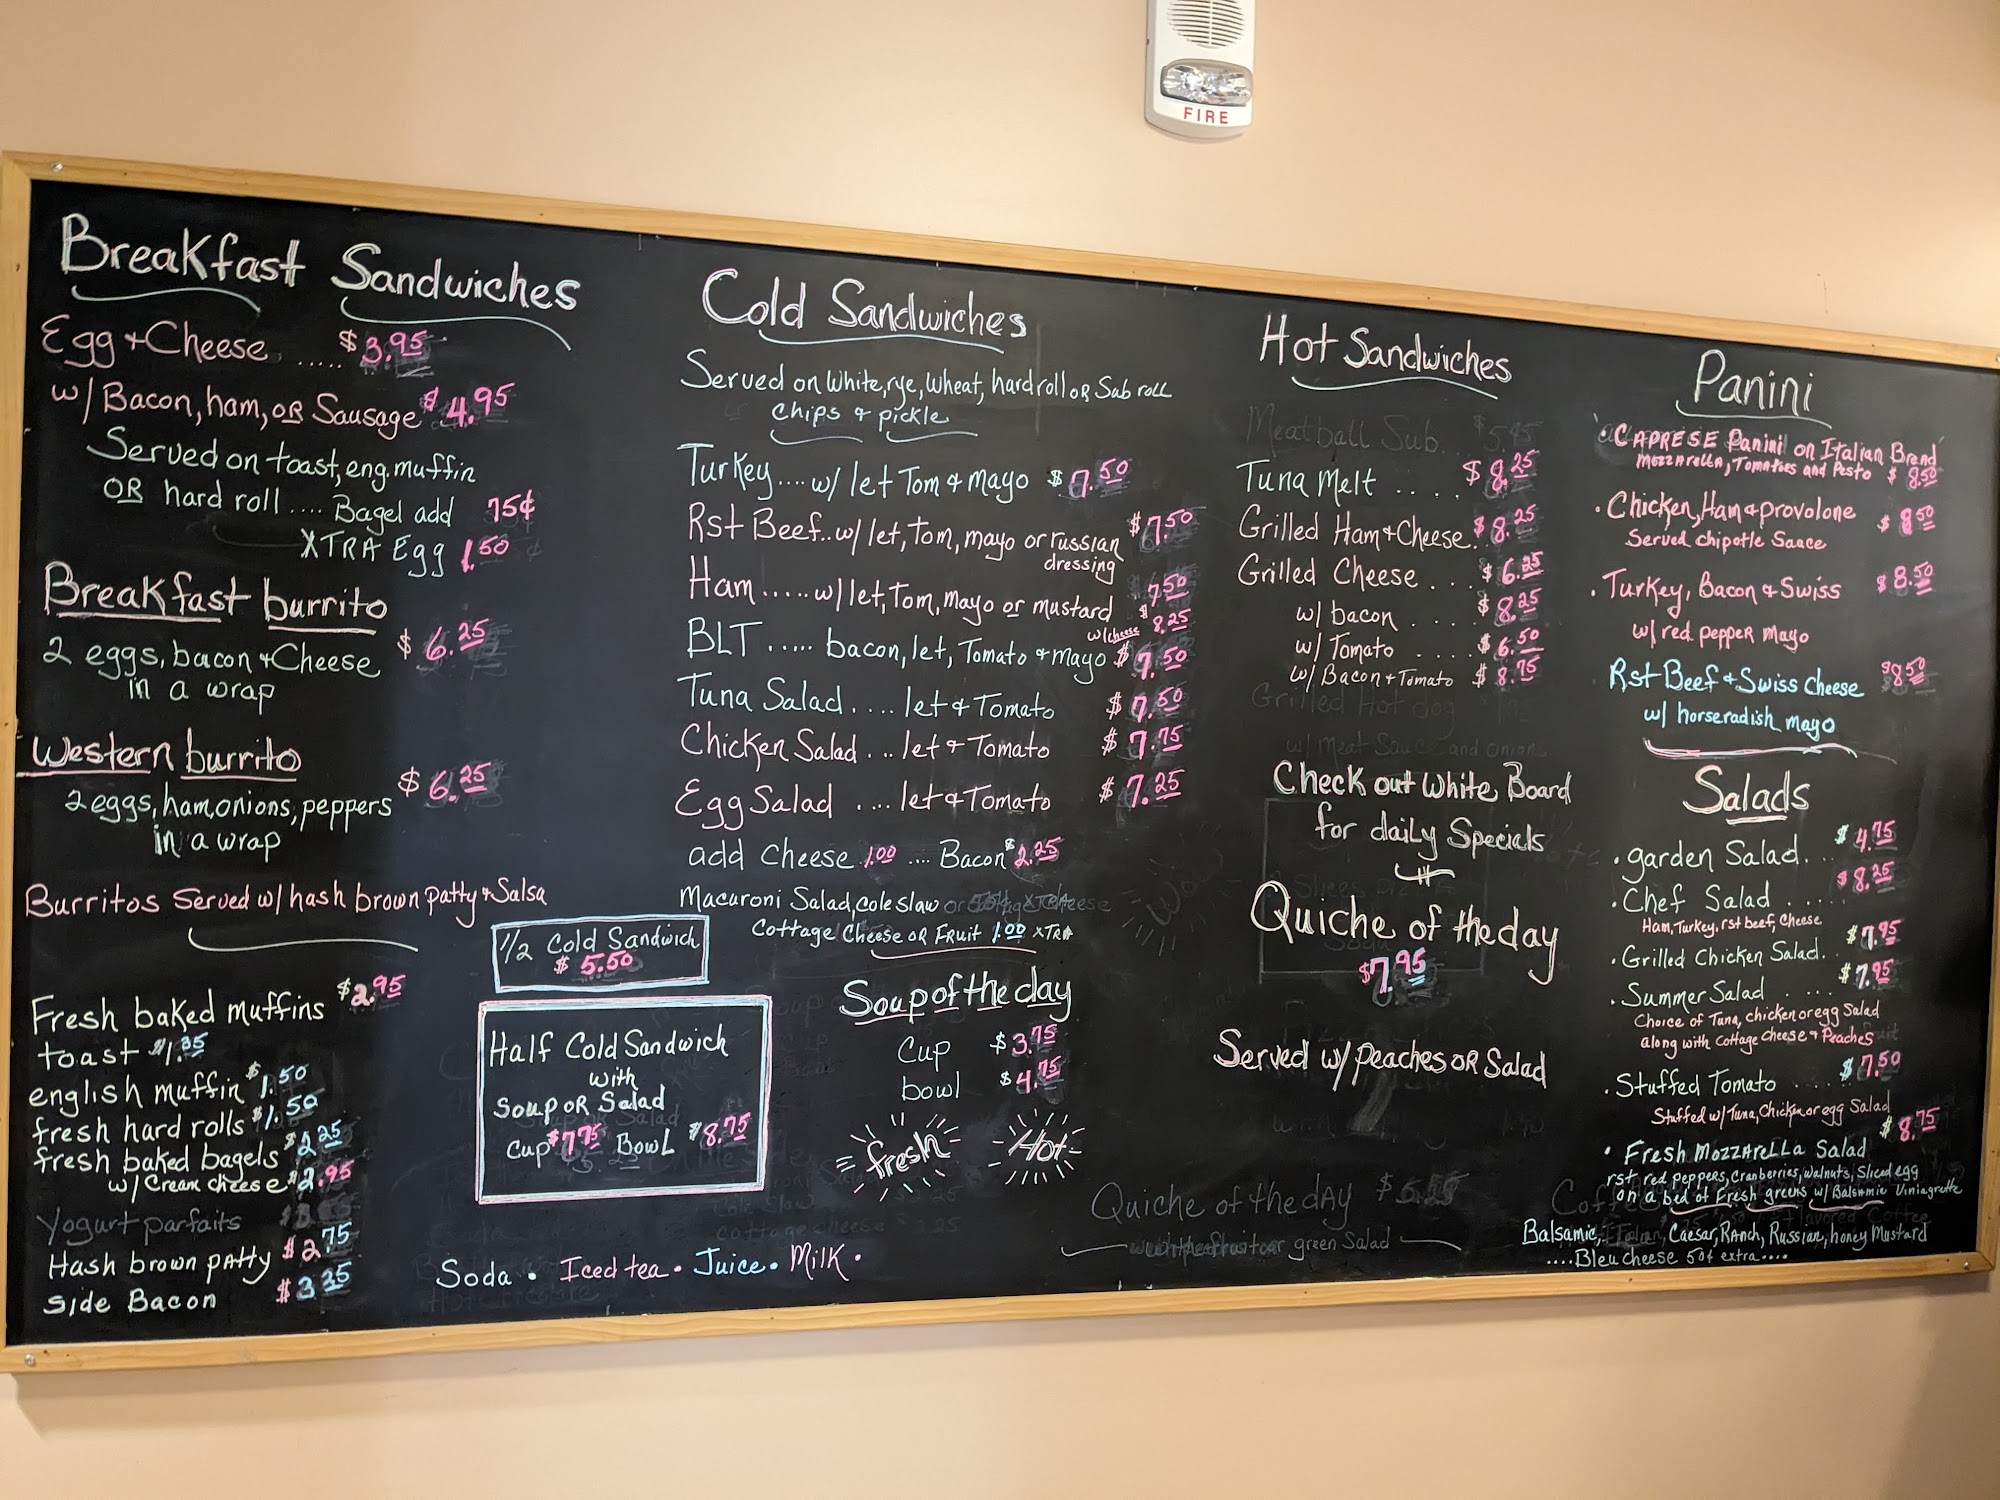 FIRE
Breakfast Sandwiches
Egg + Cheese ..... $3.95
w/ Bacon, ham, OR Sausage $4.95
Served on toast, eng. muffin
OR hard roll .... Bagel add 75¢
XTRA Egg 1.50
Breakfast burrito
2 eggs, bacon + Cheese $6.25
in a wrap
Western burrito
2 eggs, ham, onions, peppers $6.25
in a wrap
Burritos Served w/ hash brown patty + Salsa
Fresh baked muffins $2.95
toast
english muffin $1.50
fresh hard rolls $1.50
fresh baked bagels
w/ Cream cheese $2.95
Yogurt parfaits
Hash brown patty $2.75
Side Bacon $3.25
1/2 Cold Sandwich
$5.50
Half Cold Sandwich
with
Soup OR Salad
Cup $7.75 Bowl $8.75
Soda • Iced tea • Juice • Milk •
Cold Sandwiches
Served on White, rye, wheat, hard roll OR Sub roll
chips + pickle
Turkey .... w/ let Tom + Mayo $7.50
Rst Beef .. w/ let, Tom, mayo or russian $7.50
dressing
Ham ..... w/ let, Tom, Mayo or mustard 7.50
w/ cheese $8.25
BLT ..... bacon, let, Tomato + Mayo $7.50
Tuna Salad .... let + Tomato $7.50
Chicken Salad ... let + Tomato $7.75
Egg Salad .... let + Tomato $7.25
add cheese 1.00 .... Bacon $2.25
Macaroni Salad, cole slaw
Cottage Cheese OR Fruit 1.00 XTRA
Soup of the day
Cup $3.75
bowl $4.75
fresh Hot
Hot Sandwiches
Meatball Sub
Tuna Melt .... $8.25
Grilled Ham + Cheese. $8.25
Grilled Cheese ... $6.25
w/ bacon .... $8.25
w/ Tomato .... $6.50
w/ Bacon + Tomato $8.75
Grilled Hot dog
w/ Meat Sauce and onion
Check out White Board
for daily Specials
Quiche of the day
$7.95
Served w/ peaches OR Salad
Quiche of the day
or green Salad
Panini
• CAPRESE Panini on Italian Bread
Mozzarella, Tomatoes and Pesto $8.50
• Chicken, Ham + provolone $8.50
Served chipotle Sauce
• Turkey, Bacon + Swiss $8.50
w/ red pepper mayo
Rst Beef + Swiss Cheese $8.50
w/ horseradish mayo
Salads
• garden Salad... $4.75
• Chef Salad ..... $8.25
Ham, Turkey, rst beef, Cheese
• Grilled Chicken Salad.. $7.95
• Summer Salad .... $7.95
Choice of Tuna, chicken or egg Salad
along with cottage cheese + Peaches
• Stuffed Tomato ..... $7.50
Stuffed w/ Tuna, Chicken or egg Salad
• Fresh Mozzarella Salad $8.75
rst red peppers, cranberries, walnuts, Sliced egg
on a bed of Fresh greens w/ Balsamic Viniagrette
Balsamic, Italian, Caesar, Ranch, Russian, honey Mustard
....Bleu cheese 50¢ extra....